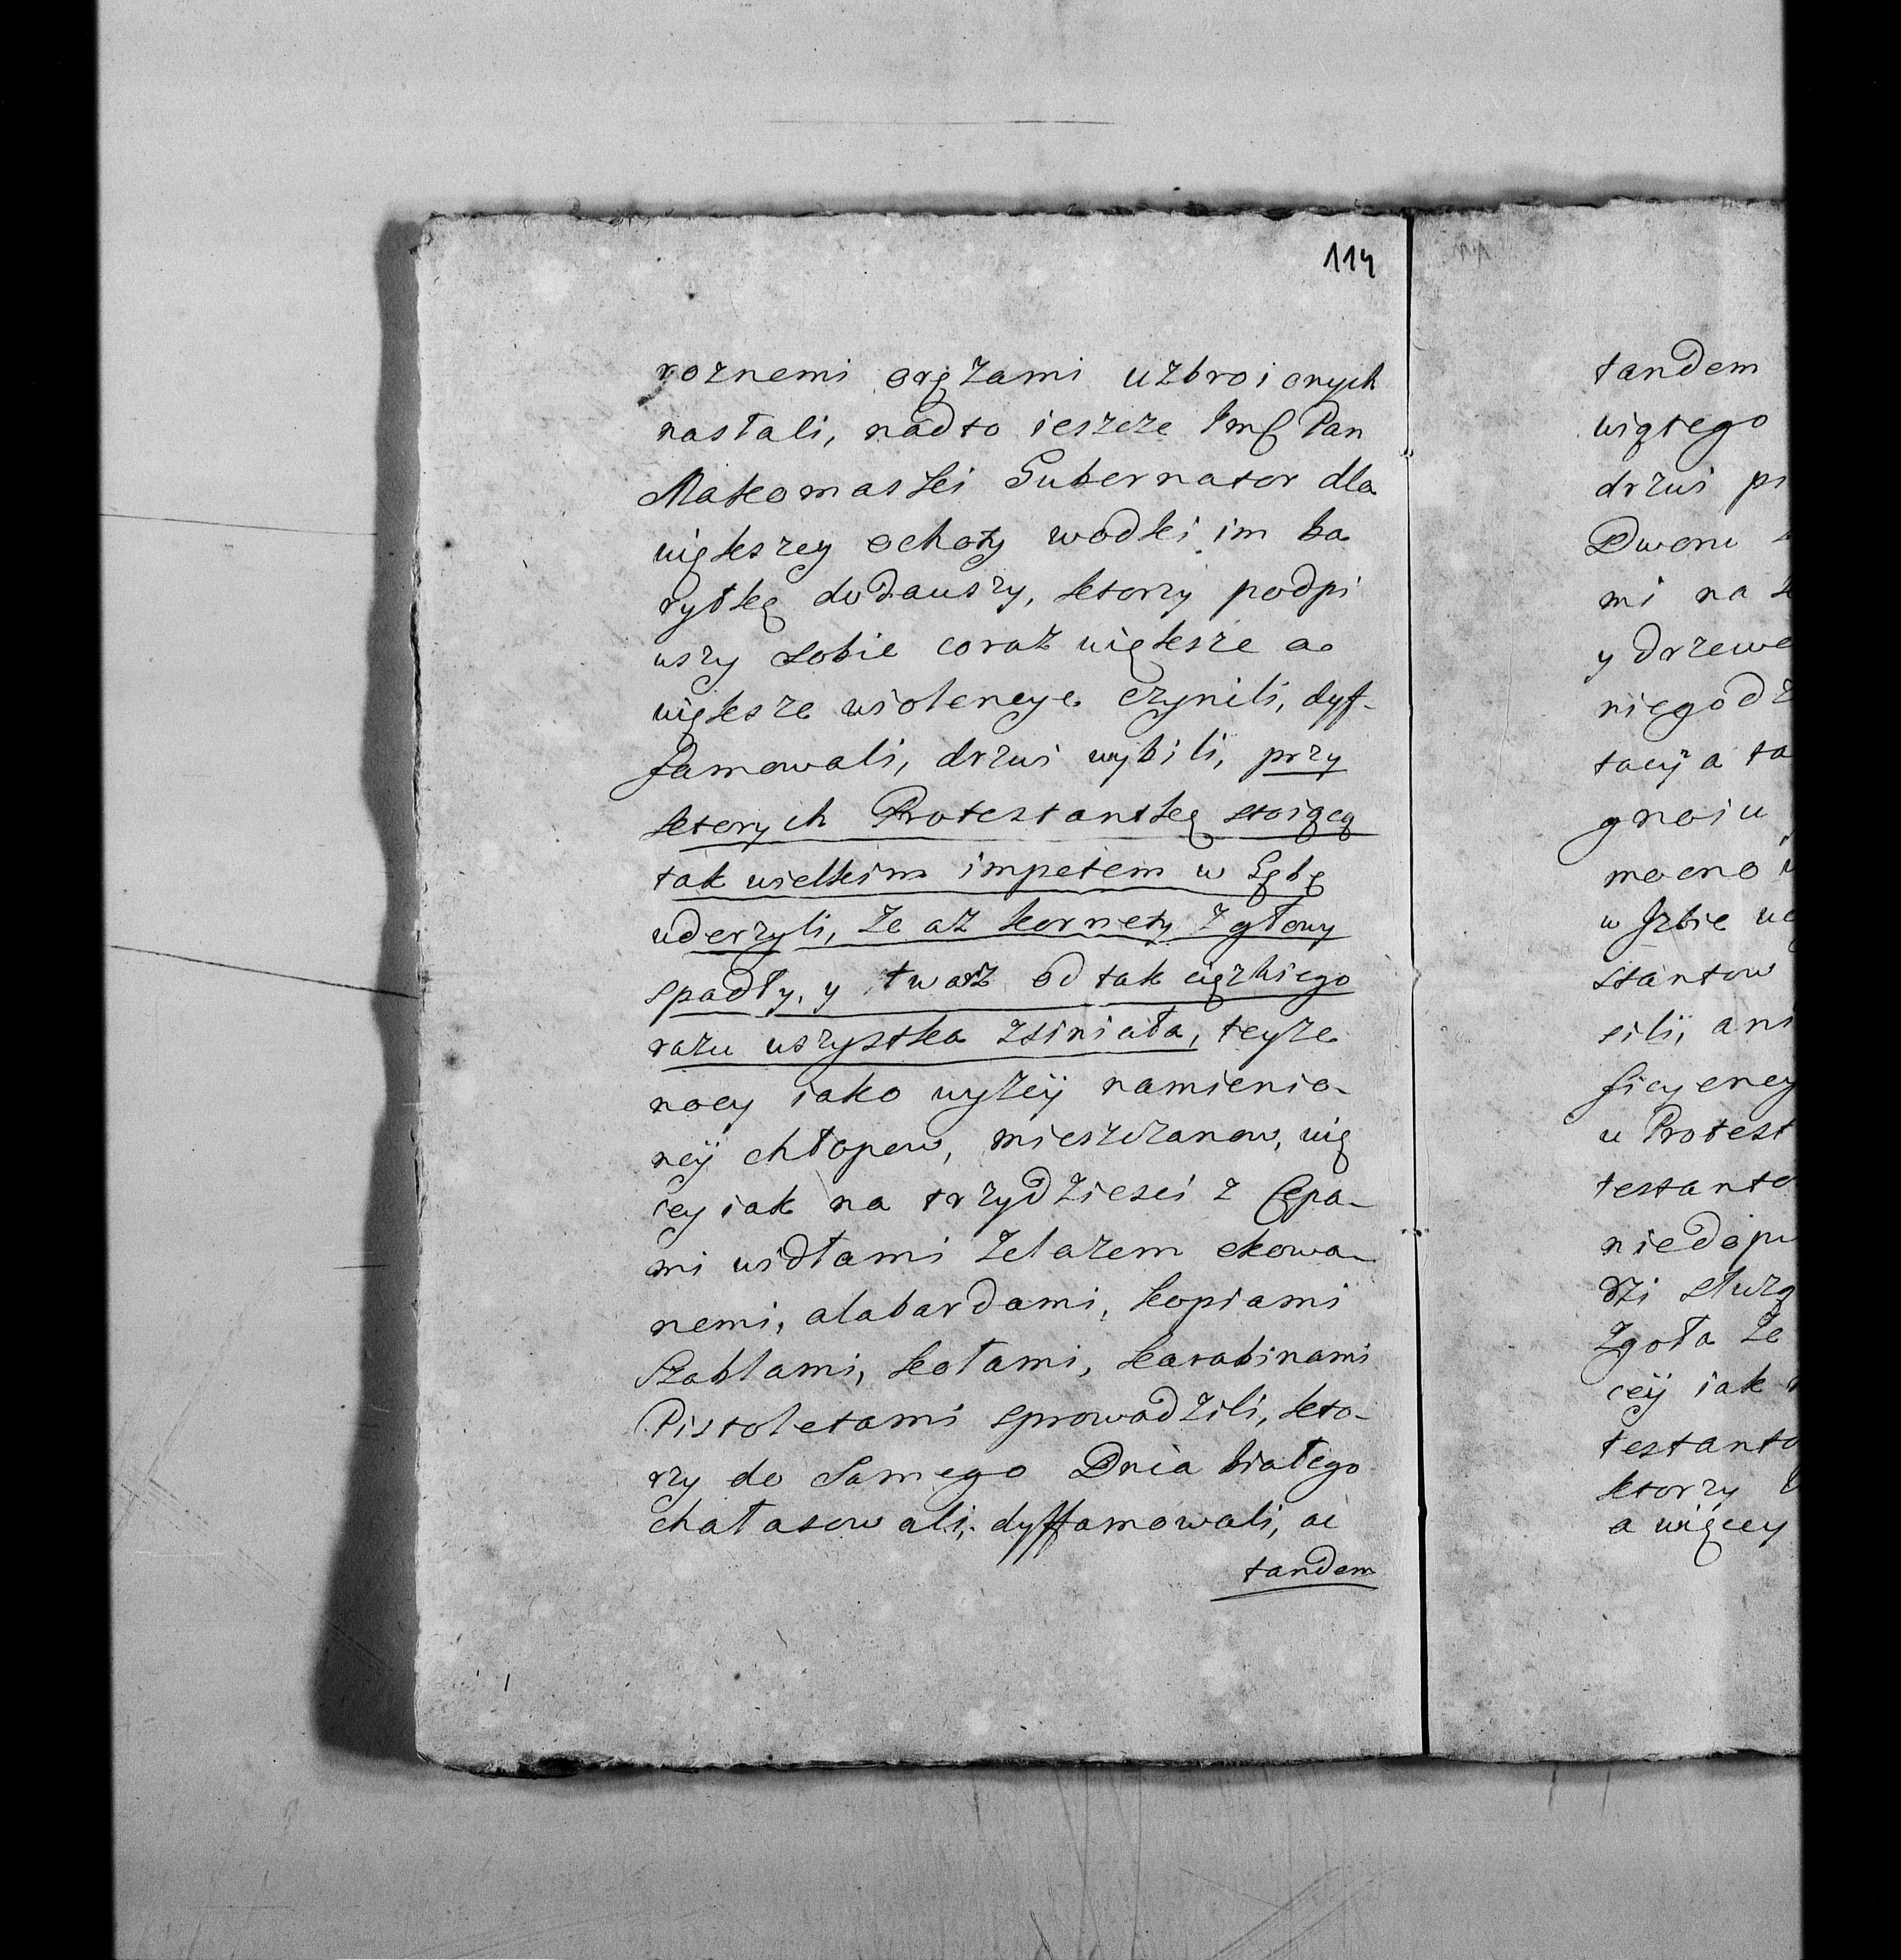 114
roznemi orężami uzbroionych
nasłali, nadto ieszcze Jmć Pan
Makomaski Gubernator dla
większey ochoty wodki im ba
ryłkę dodawszy, ktorzy podpi
wszy sobie coraz większe a
większe wiolencye czynili, dyf-
famowali, drzwi wybili, przy
ktorych Protestantkę stoiącą
tak wielkim impetem w Gębę
uderzyli, że aż kornety z głowy
spadły, y twarz od tak ciężkiego
razu wszystka zsiniała, teyże
nocy iako wyżeÿ namienio-
neÿ chłopow, mieszczanow, wię
cey iak na trzydzieści z Cepa-
mi widłami żelazem okowa-
nemi, alabardami, kopiami
Szablami, kołami, karabinami
Pistoletami sprowadzili, kto-
rzy do Samego Dnia białego
chałasowali, dyffamowali, ac
tandem
tandem
wiątego
drzwi
Dworu
mi na
y drzewe
niegodz
tacÿa ta
gnoiu
mocno
w Jzbie
stantow
cili, ani
ficyency
u Protest
testanto
niedopu
dzi służą
Zgoła że
ceÿ iak
testanto
ktorzy
a więcey